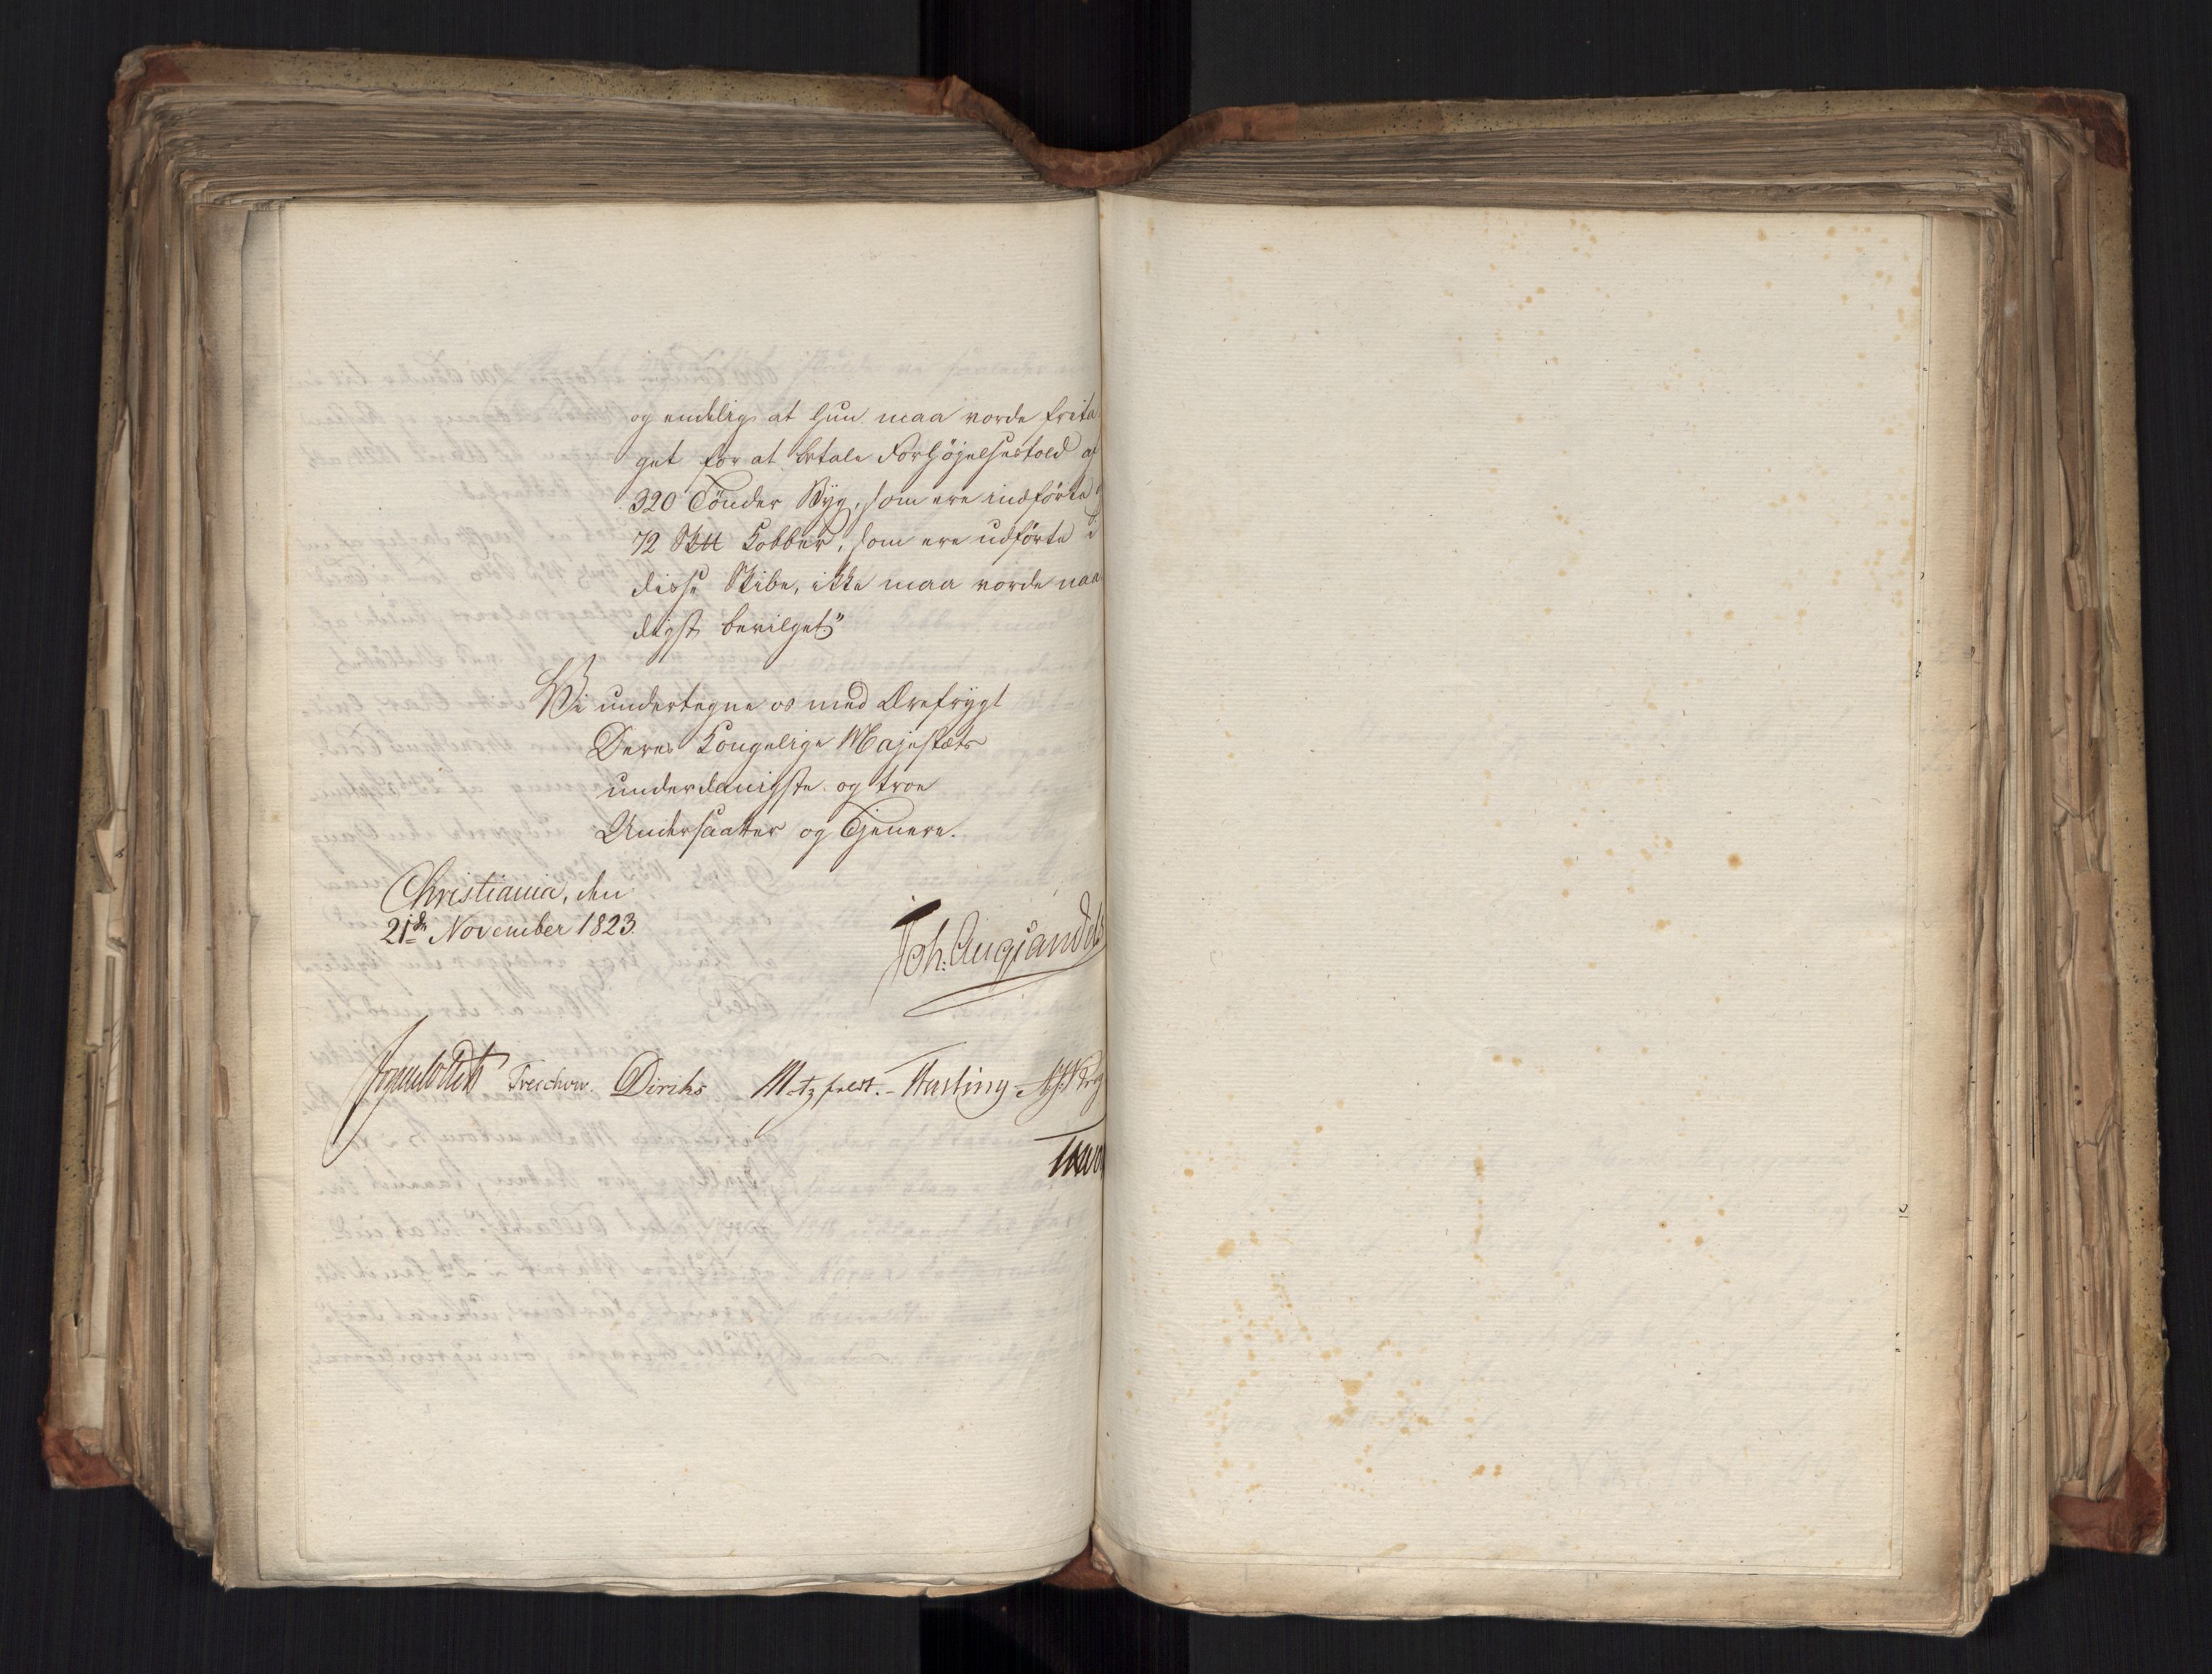 og endelig at hun maa vorde frita
get for at betale Forhöjelsestold af
320 Tönder Byg, som ere indförte
72 Sk℔ Kobber, som ere udförte i
disse Skibe, ikke maa vorde naa
digst bevilget"
Vi undertegne os med Ærefrygt
Deres Kongelige Majestæts
underdanigste og troe
Undersaatter og Tjenere.
Christiania, den
21de November 1823.
Joh. Aug: Sandels
Sommerhielm Treschow. Diriks Motzfeldt. Fasting